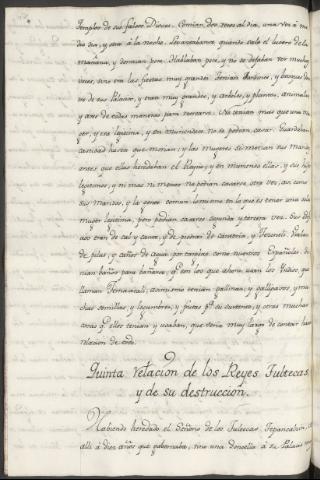 Templos de sus falsos Dioses. Comian dos veces al dia, una vez á me-
dio dia, y otra á la noche. Levantabanse quando salia el lucero de la
mañana, y dormian poco. Hablaban poco, y no se dejaban ver muchas
veces, sino era las fiestas muy grandes. Tenian Jardines, y bosques den-
tro de sus Palacios, y eran muy grandes, y arboles, y plantas, animales
y aves de todas maneras para recrearse. No tenian mas que una mu-
ger, y era legitima, y en muriendose no se podian casar. Guardaban
castidad hasta que morian; y las mugeres si morian sus maridos
antes que ellas heredaban el Reyno; y en muriendo ellas, y sus hijos
legitimos, y ni mas ni menos no podian casarse otra vez, asi como
sus maridos, y la gente comun lo mismo en lo que es tener una sola
muger legitima, pero podian casarse segunda y tercera vez. Sus edifi-
cios eran de cal y canto, y de piedras de canteria, y Tezontli.
de pilas, y caños de agua por tarabea como nuestros Españoles. Te-
nian baños para bañarse, q.e son los que ahora usan los Yndios, que
llaman Temascali; asimismo tenian gallinas, y gallipavos, y mu-
chas semillas, y legumbres, y frutas p.a su sustento, y otras muchas
cosas q.e ellos tenian y usaban, que seria muy largo de contar hacer
relacion de todo.
Quinta relacion de los Reyes Tultecas
y de su destruccion.
Habiendo heredado el Señorio de los Tultecas, Tepancaltzin,
alli á diez años que gobernaba, vino una doncella á su Palacio